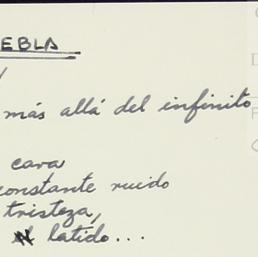 EBLA
más allá del infinito
cara
constante ruido
tristeza,
el latido...